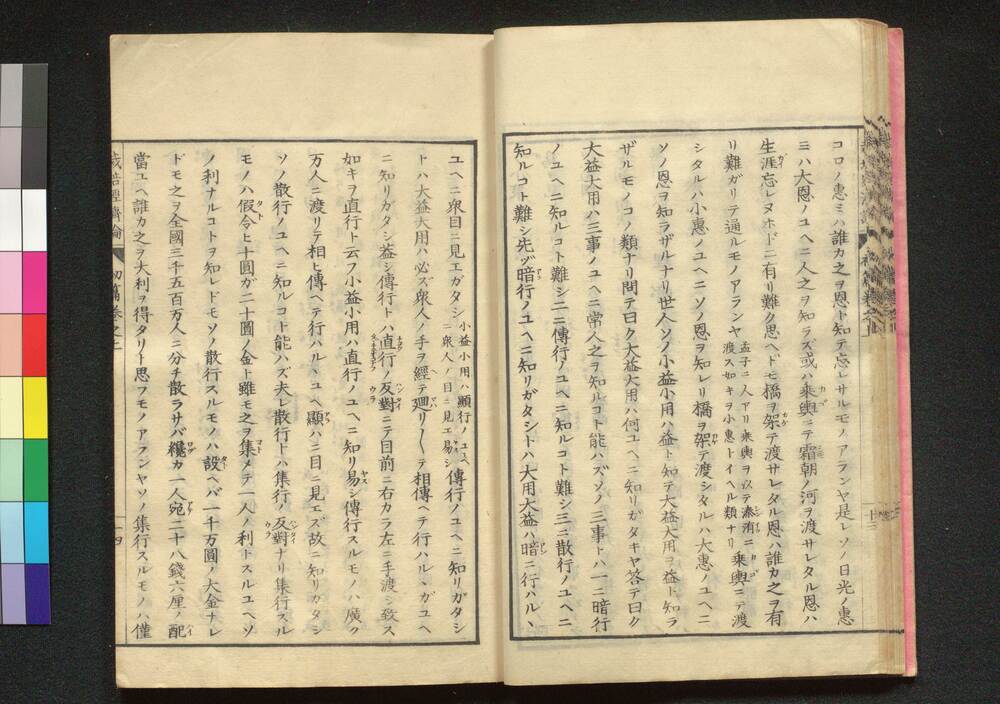 コロノ惠ミハ誰カ之ヲ恩ト知テ忘レサルモノアランヤ是レソノ日光ノ惠
ミハ大恩ノユヘニ人之ヲ知ラズ或ハ乘輿ニテ霜朝ノ河ヲ渡サレタル恩ハ
生涯忘レヌホドニ有リ難ク思ヘドモ橋ヲ架テ渡サレタル恩ハ誰カ之ヲ有
リ難ガリテ通ルモノアランヤ孟子ニ人アリ乘輿ヲ以テ溱洧ニ渡ス如キヲ小惠トイヘル類ナリ乘輿ニテ渡
シタルハ小惠ノユヘニソノ恩ヲ知レリ橋ヲ架テ渡シタルハ大惠ノユヘニ
ソノ恩ヲ知ラザルナリ世人ソノ小益小用ハ益ト知テ大益大用ヲ益ト知ラ
ザルモノコノ類ナリ問テ曰ク大益大用ハ何ユヘニ知リガタキヤ答テ曰ク
大益大用ハ三事ノユヘニ常人之ヲ知ルコト能ハズソノ三事トハ一ニ暗行
ノユヘニ知ルコト難シ二ニ傳行ノユヘニ知ルコト難シ三ニ散行ノユヘニ
知ルコト難シ先ヅ暗行ノユヘニ知リガタシトハ大用大益ハ暗ニ行ハルヽ
ユヘニ衆目ニ見エガタシ小益小用ハ顯行ノユヘニ衆人ノ目ニ見エ易シ傳行ノユヘニ知リガタシ
トハ大益大用ハ必ズ衆人ノ手ヲ經テ廻リ〱テ相傳ヘテ行ハルヽガユヘ
ニ知リカタシ益シ傳行トハ直行ノ反對ニテ目前ニ右カラ左ニ手渡シ致ス
如キヲ直行ト云フ小益小用ハ直行ノユヘニ知リ易シ傳行スルモノハ廣ク
万人ニ渡リテ相ヒ傳ヘテ行ハルヽユヘ顯ハニ目ニ見エズ故ニ知リカタシ
ソノ散行ノユヘニ知ルコト能ハズ夫レ散行トハ集行ノ反對ナリ集行スル
モノハ假令ヒ十圓ガ二十圓ノ金ト雖モ之ヲ集メテ一人ノ利トスルユヘソ
ノ利ナルコトヲ知レドモソノ散行スルモノハ設ヘバ一千万圓ノ大金ナレ
ドモ之ヲ全國三千五百万人ニ分チ散ラサバ纔カ一人宛二十八錢六厘ノ配
當ユヘ誰カ之ヲ大利ヲ得タリト思フモノアランヤソノ集行スルモノハ僅
經濟論 初篇巻之上 十四
十三